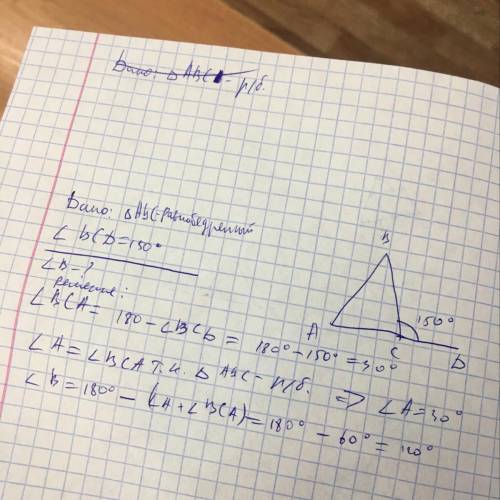 Дано: △ ABC - р/б.
Дано: △ABC-равнобедренный
∠ BCD=150°
∠B-?
Решение:
∠BCA= 180-∠BCD = 180°-150°=30°
∠A=∠BCA т.к. △ ABC- р/б. => ∠A=30°
∠B=180°-(∠A+∠BCA)=180°-60°=120°
B
A
150°
C
D